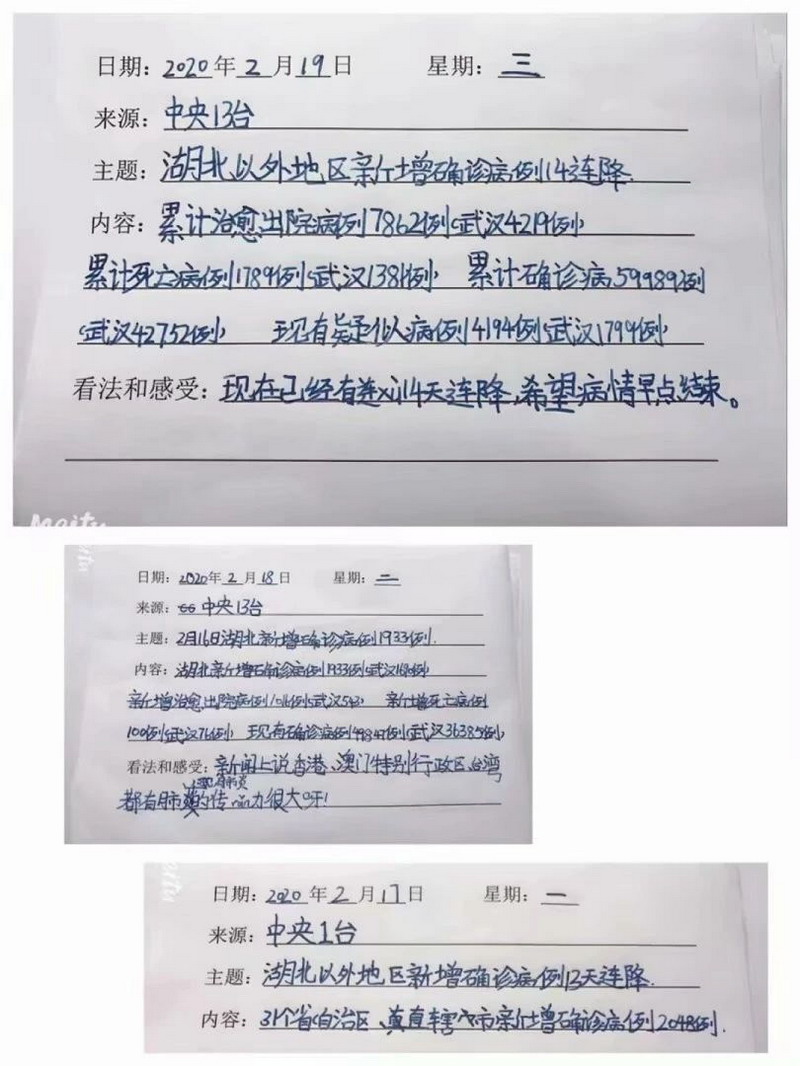 日期：2020年2月19日 星期：三
来源：中央13台
主题：湖北以外地区新增确诊病例14连降.
内容：累计治愈出院病例7862例(武汉4219例)
累计死亡病例1789例(武汉1381例) 累计确诊病59989例
(武汉42752例) 现有疑似病例4194例(武汉1799例)
看法和感受：现在已经有连续14天连降,希望病情早点结束。
Meitu
日期：2020年2月18日 星期：二
来源：中央13台
主题：2月16日湖北新增确诊病例1933例.
内容：湖北新增确诊病例1933例(武汉1690例)
新增治愈出院病例1016例(武汉543) 新增死亡病例
100例(武汉76例) 现有确诊病例49847例(武汉36385例)
看法和感受：新闻上说香港、澳门特别行政区,台湾
都有肺炎的传 力很大呀!
日期：2020年2月17日 星期：一
来源：中央1台
主题：湖北以外地区新增确诊病例13天连降.
内容：31个省(自治区、直辖市新增确诊病例2048例.